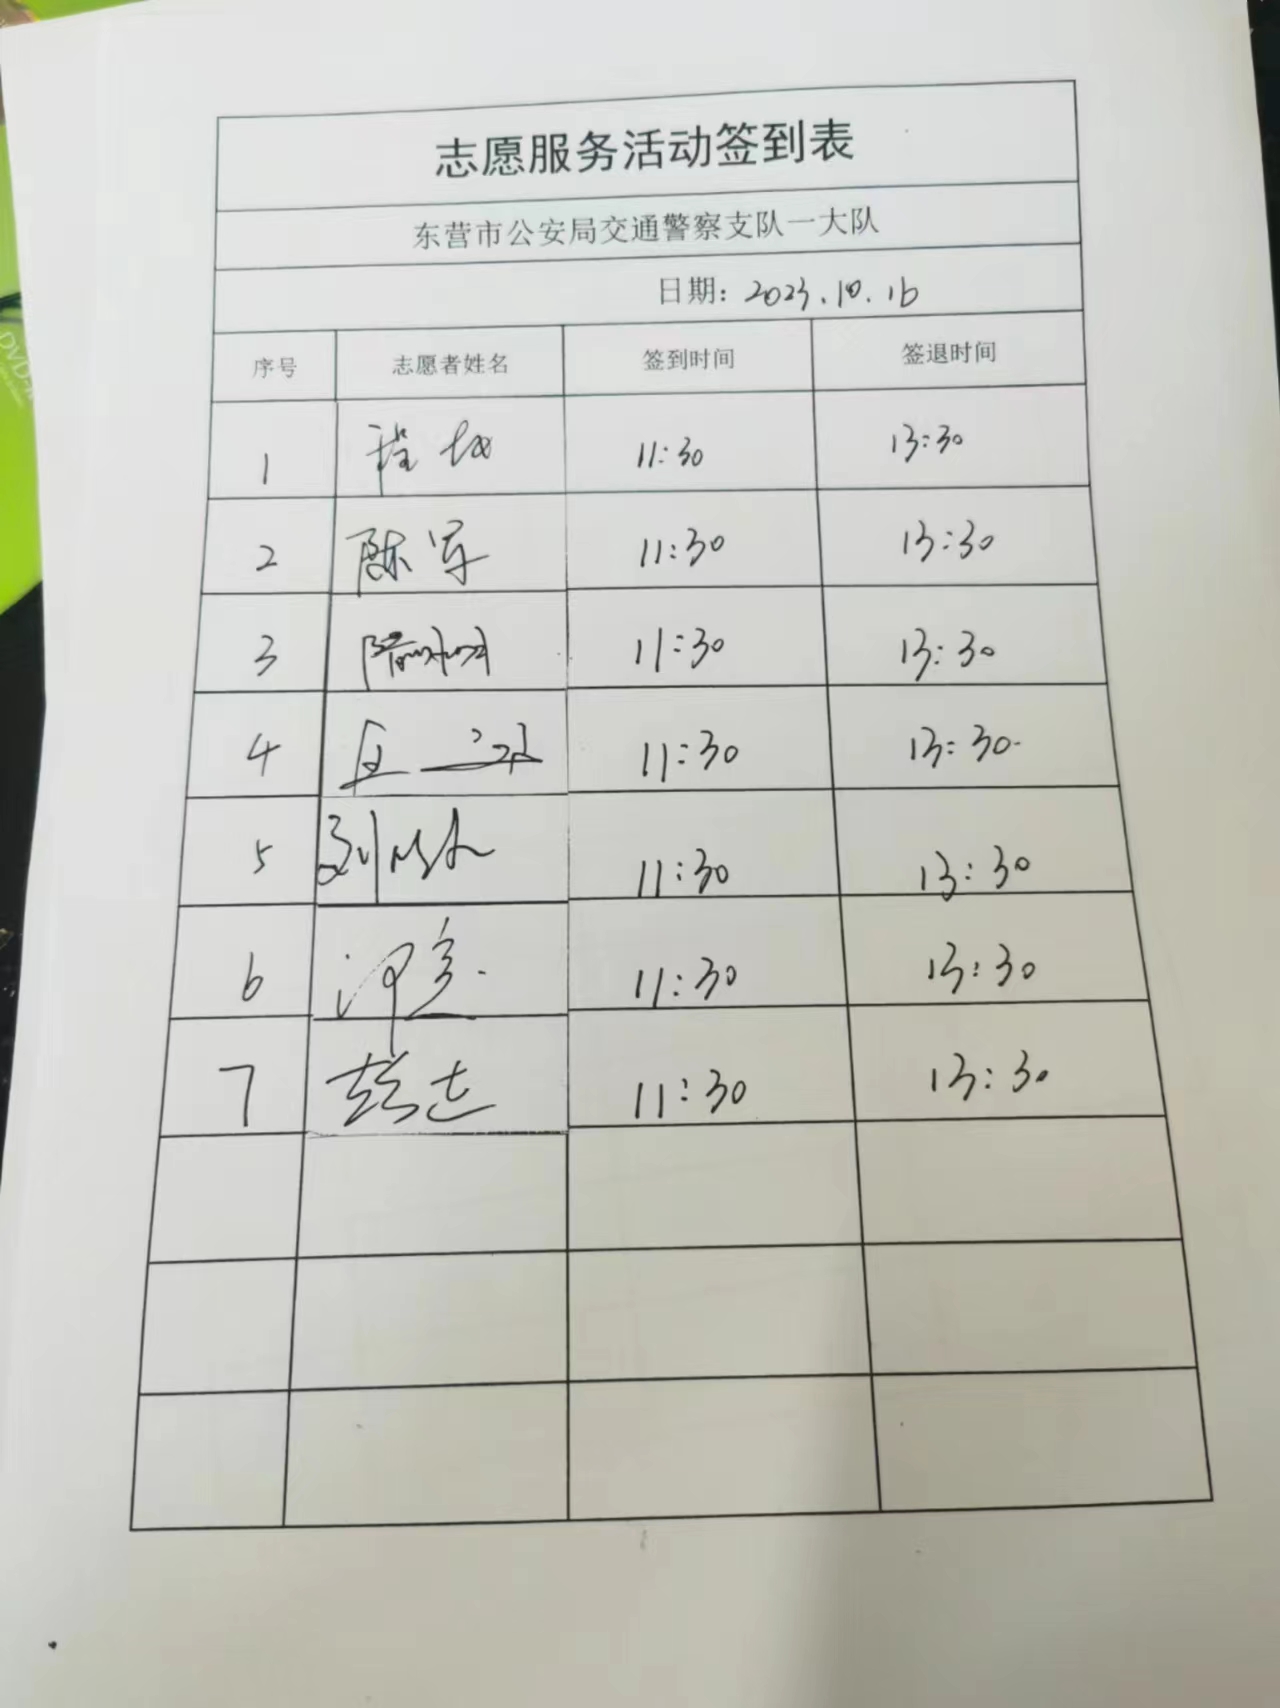 志愿服务活动签到表
东营市公安局交通警察支队一大队
日期：2023.10.16
序号 志愿者姓名 签到时间 签退时间
1 11:30 13:30
2 陈军 11:30 13:30
3 11:30 13:30
4 11:30 13:30
5 刘 11:30 13:30
6 11:30 13:30
7 11:30 13:30
DVD